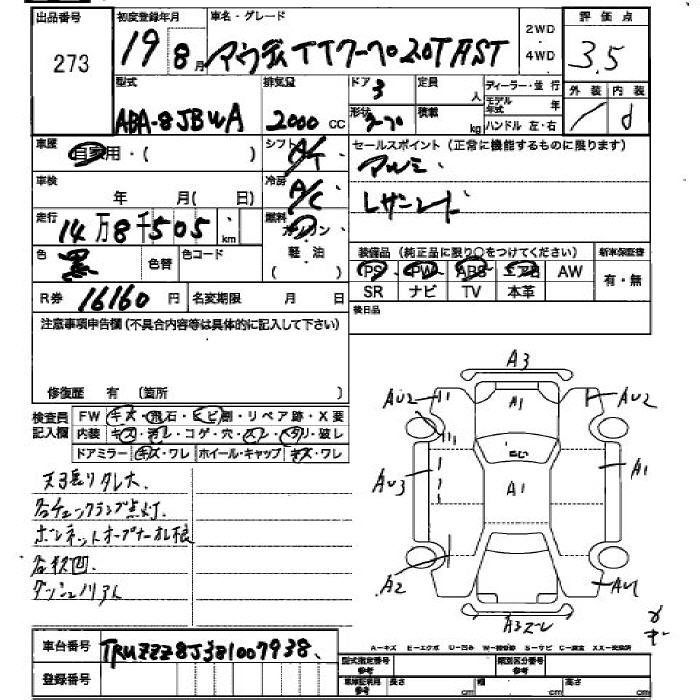 出品番号
273
初度登録年月
19 8月
車名・グレード
アウディTTクーペ 2.0TFAST
2WD
4WD
評価点
3.5
型式
ABA-8JBWA
排気量
2000 CC
ドア
3
形状
定員
人
積載
kg
ディーラー・並行
モデル年式 年
ハンドル 左・右
外装 内装
車歴
自家用・( )
シフト
A/T
セールスポイント(正常に機能するものに限ります)
アルミ・
車検
年 月( 日)
冷房
A/C
走行
14万8千505 km
燃料
ガソリン
軽・油
( )
色
黒
色替
色コード
装備品(純正品に限り○をつけてください)
新車保証書
PS PW ABS エアB AW
SR ナビ TV 本革
有・無
R券 16160円
名変期限 月 日
後日品
注意事項申告欄(不具合内容等は具体的に記入して下さい)
修復歴 有 (箇所 )
検査員記入欄
FW キズ・飛石・ヒビ割・リペア跡・X要
内装 キズ・汚レ・コゲ・穴・スレ・ヘタリ・破レ
ドアミラー キズ・ワレ ホイール・キャップ キズ・ワレ
天張りタレ大
各チェックランプ点灯
ボンネットオープナー
A3
AU2
A1
AU2
AU3
A1
A1
A2
A3スレ
車台番号
TRUZZZ8J381007938
登録番号
A-キズ E-エクボ U-凹み W-補修跡 S-サビ C-腐食 XX-交換済
型式指定番号 参考
類別区分番号 参考
長さ cm
幅 cm
高さ cm